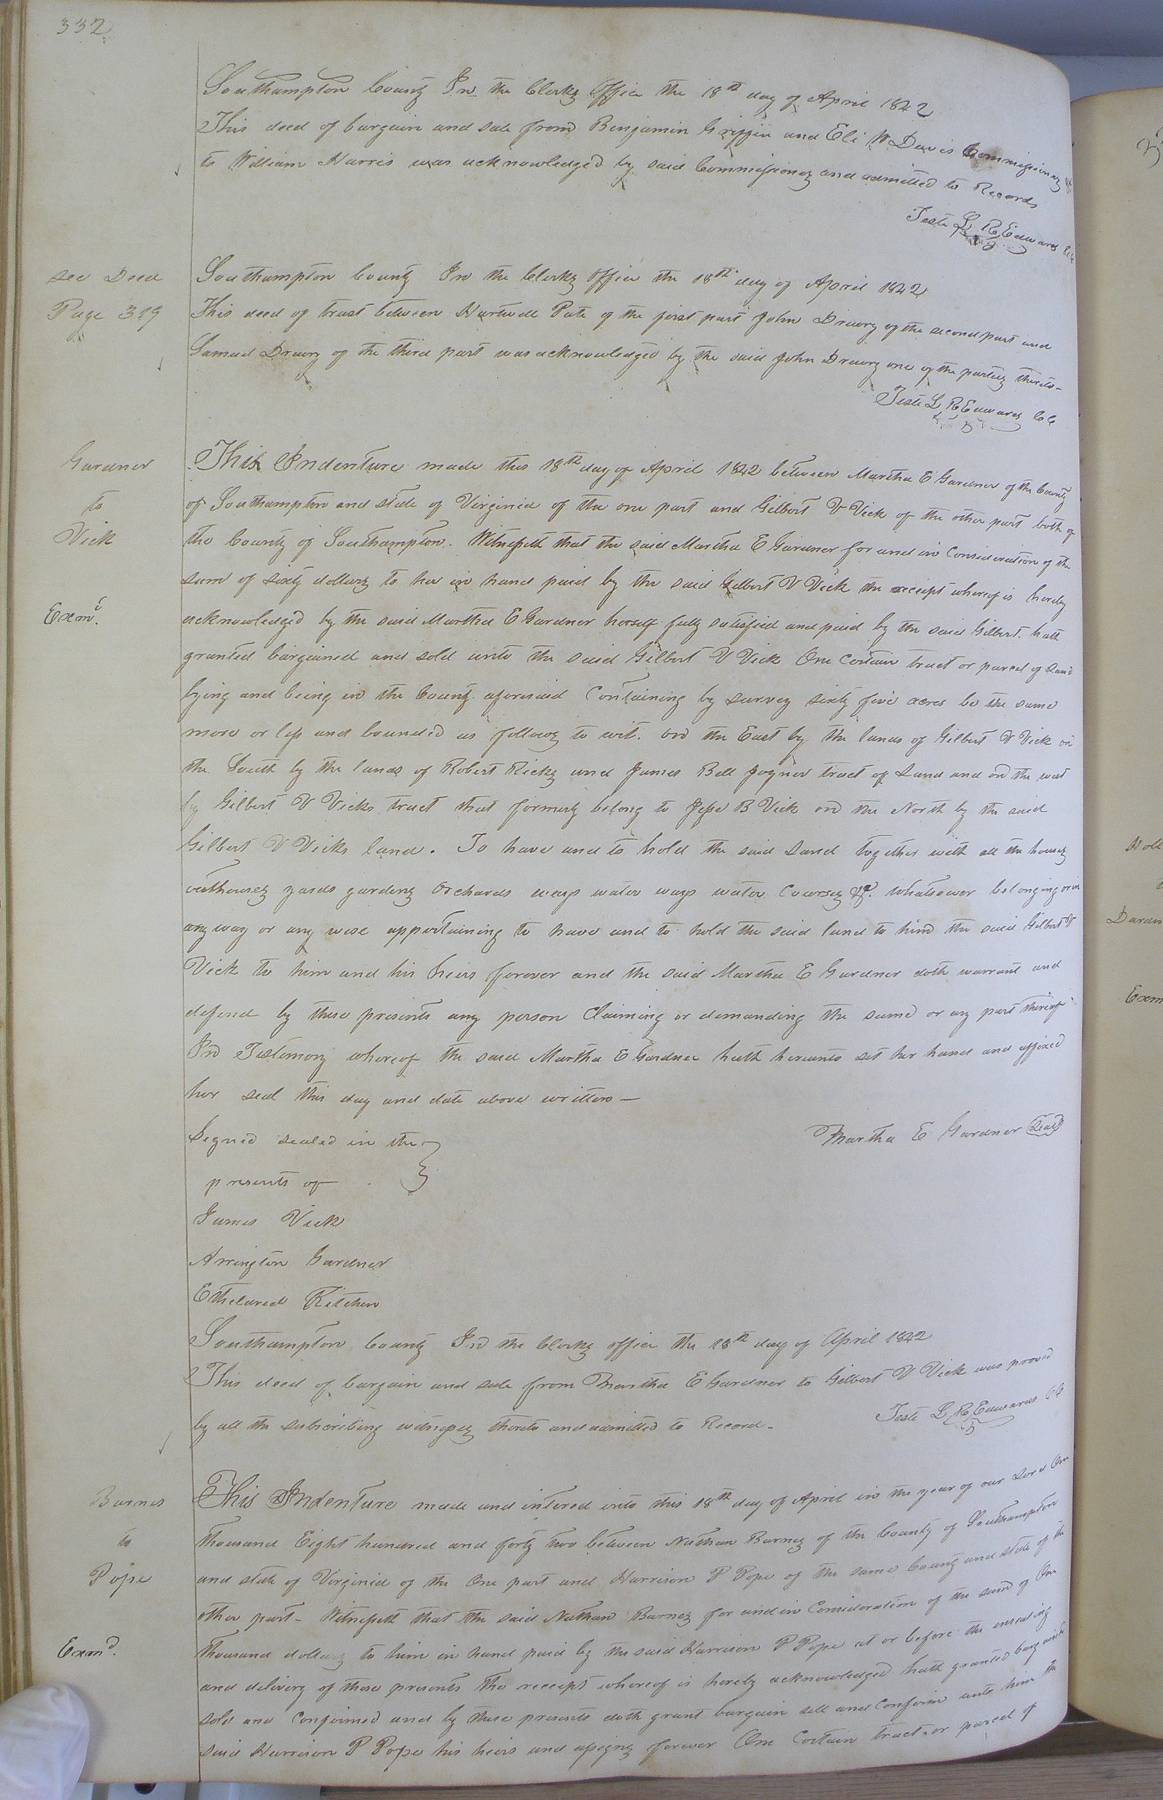 332
Southampton County In the Clerks Office the 18th day of April 1842
This deed of bargain and sale from Benjamin Griffin and Eli W Davis Commissioners &c
to William Harris was acknowledged by said Commissioners and admitted to Records
Teste L R Edwards Clk
see Deed
Page 319
Southampton County In the Clerks Office the 18th day of April 1842
This deed of trust between Hartwell Pate of the first part John Drewry of the second part and
Samuel Drewry of the third part was acknowledged by the said John Drewry one of the parties thereto—
Teste L R Edwards CC
Gardner
to
Vick
Exmd.
This Indenture made this 18th day of April 1842 between Martha E Gardner of the County
of Southampton and state of Virginia of the one part and Gilbert V Vick of the other part both of
the County of Southampton. Witnesseth that the said Martha E Gardner for and in Consideration of the
sum of sixty dollars to her in hand paid by the said Gilbert V Vick the receipt whereof is hereby
acknowledged by the said Martha E Gardner herself fully satisfied and paid by the said Gilbert. hath
granted bargained and sold unto the said Gilbert V Vick One Certain tract or parcel of Land
lying and being in the County aforesaid Containing by survey sixty five acres be the same
more or less and bounded as follows to wit. on the East by the lands of Gilbert V Vick on
the South by the lands of Robert Ricks and James Bell Joyner tract of Land and on the west
by Gilbert V Vicks tract that formerly belong to Jesse B Vick on the North by the said
Gilbert V Vicks land. To have and to hold the said Land together with all the houses
outhouses yards gardens Orchards ways water ways water Courses &c. whatsoever belonging or in
any way or any wise appertaining to have and to hold the said land to him the said Gilbert V
Vick to him and his heirs forever and the said Martha E Gardner doth warrant and
defend by these presents any person Claiming or demanding the same or any part thereof
In Testimony whereof the said Martha E Gardner hath hereunto set her hand and affixed
her seal this day and date above written—
Signed sealed in the
presents of
Martha E Gardner Seal
James Vick
Arrington Gardner
Etheldred Kitchen
Southampton County In the Clerks office the 18th day of April 1842
This deed of bargain and sale from Martha E Gardner to Gilbert V Vick was proved
by all the subscribing witnesses thereto and admitted to Record—
Teste L R Edwards CC
Barnes
to
Pope
Exmd.
This Indenture made and intered into this 18th day of April in the year of our Lord One
thousand Eight hundred and forty two between Nathan Barnes of the County of Southampton
and state of Virginia of the One part and Harrison P Pope of the same County and state of the
other part— Witnesseth that the said Nathan Barnes for and in Consideration of the sum of One
thousand dollars to him in hand paid by the said Harrison P Pope at or before the ensealing
and delivery of these presents the receipt whereof is hereby acknowledged hath granted bargained
sold and Confirmed and by these presents doth grant bargain sell and Confirm unto him the
said Harrison P Pope his heirs and assigns forever One Certain tract or parcel of